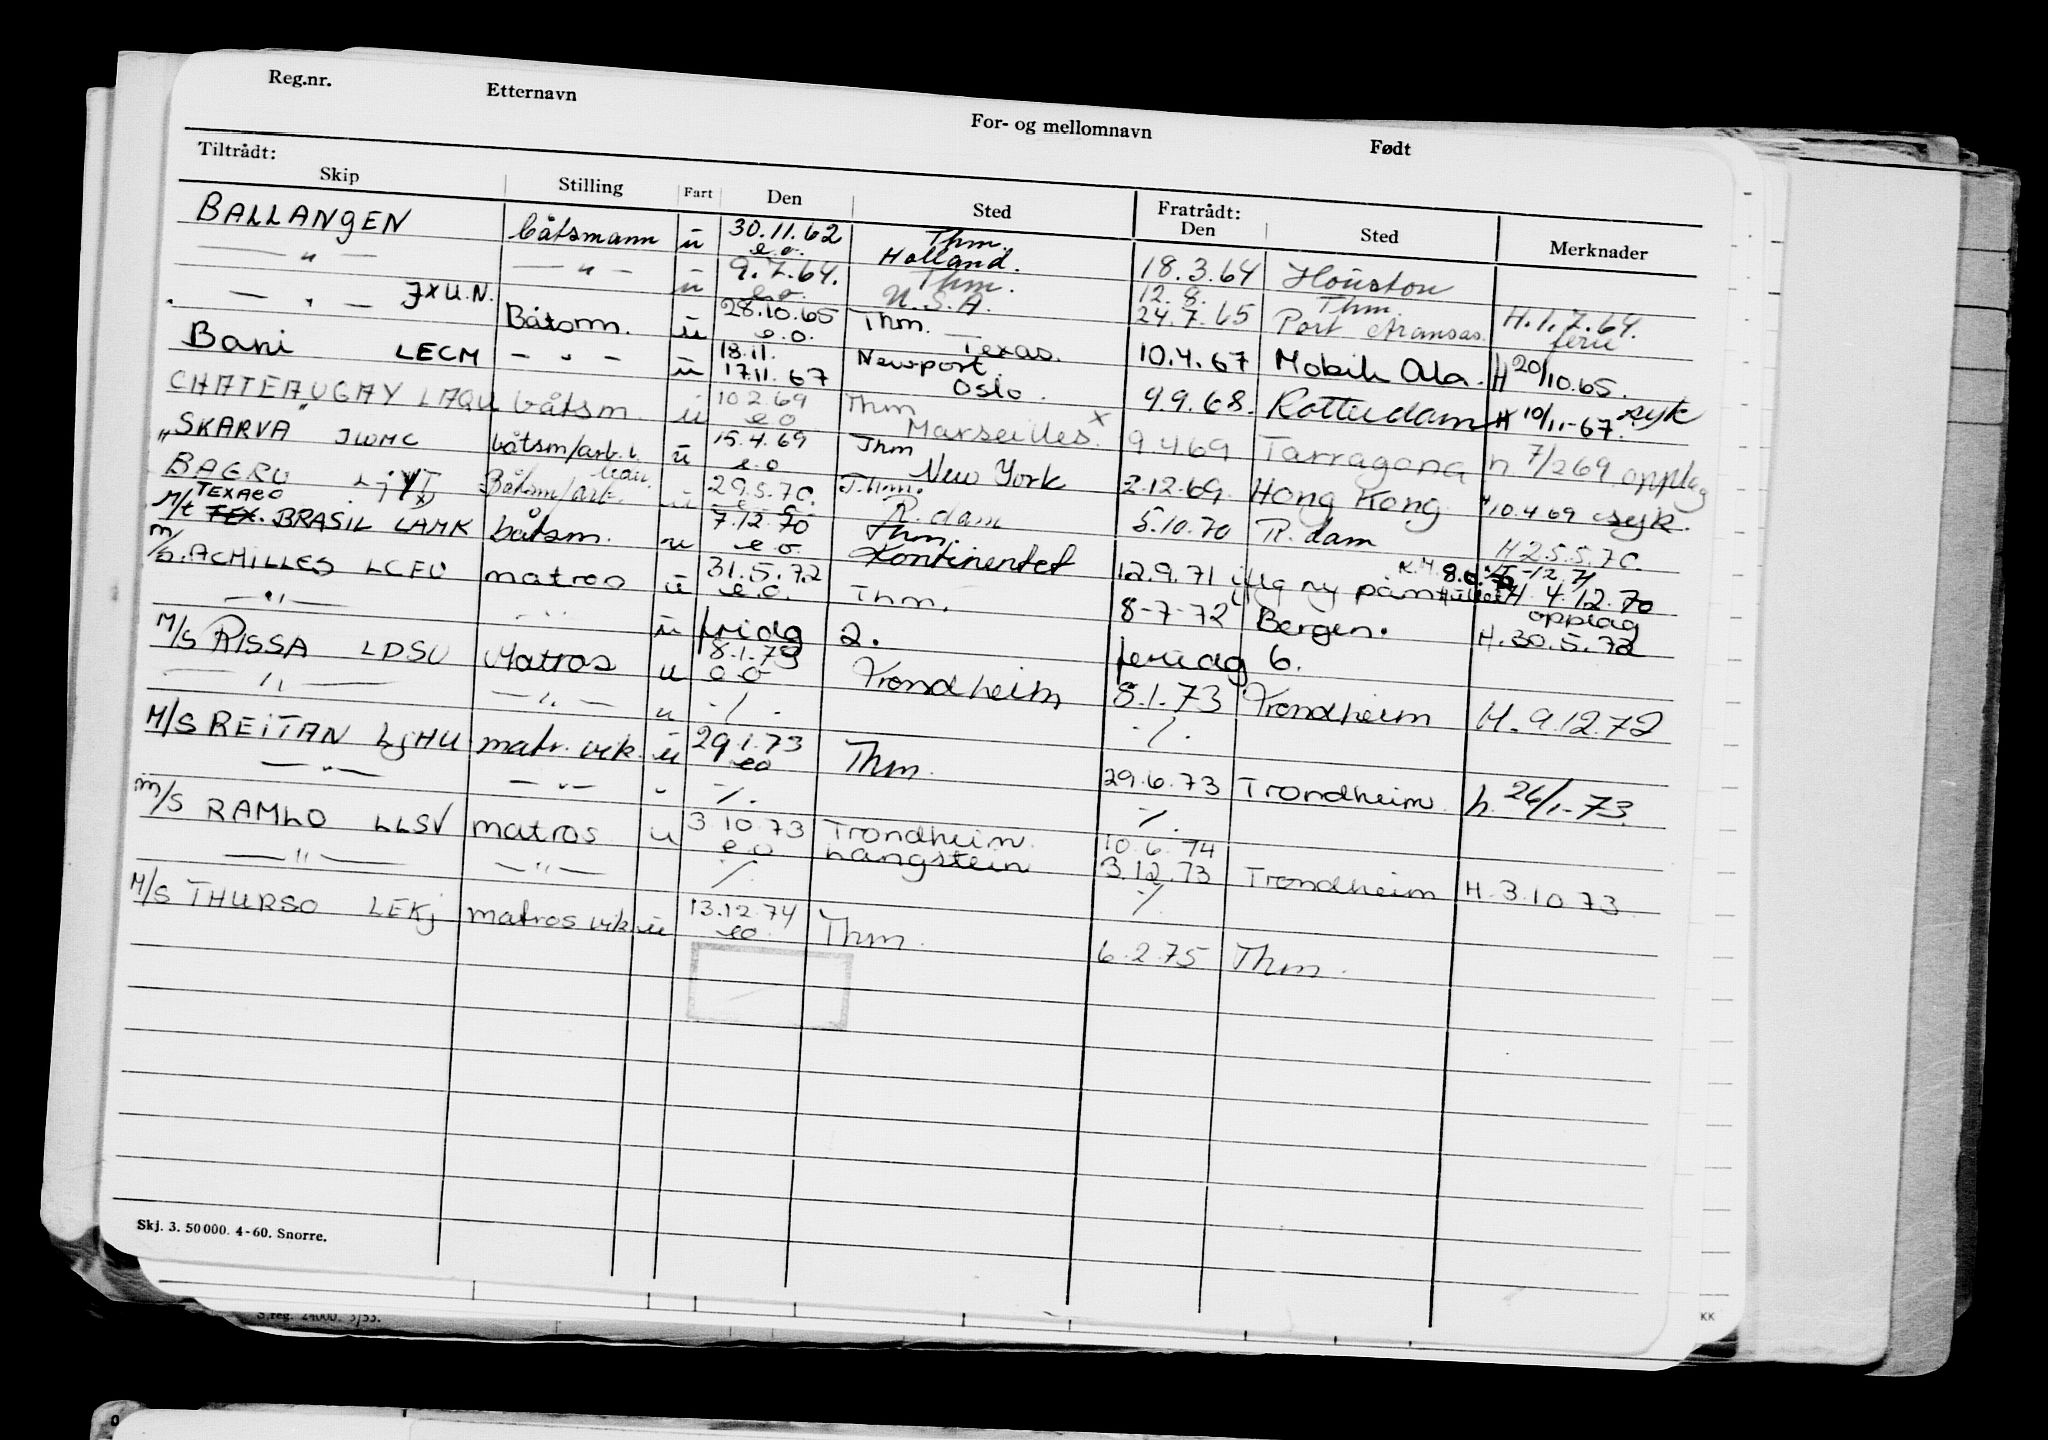 Reg.nr. Etternavn For- og mellomnavn Født
Tiltrådt: Fratrådt:
Skip Stilling Fart Den Sted Den Sted Merknader
BALLANGEN båtsmann u 30.11.62 e.o. Thm. Holland. 18.3.64 Houston
— " — — " — u 9.7.64. e.o. Thm. U.S.A. 12.8. 24.7.65 Thm. Port Aransas. Texas. H.1.7.64. ferie
— " — JXUN. Båtsm. u 28.10.65 e.o. 18.11. Thm. Newport 10.4.67 Mobile Ala. H 20/10.65.
Bani LECM — " — u 17.11.67 Oslo. 9.9.68. Rotterdam H 10/11-67. syk
CHATEAUGAY LAQU båtsm. u 10.2.69 e.o Thm Marseilles. x 9.4.69 Tarragona h 7/2 69 opplag
"SKARVA" JWMC båtsm/arb. u 15.4.69 e.o Thm New York 2.12.69. Hong Kong H 10.4.69 syk.
BAERU Båtsm/arb. u 29.5.70. e.o. Thm. R.dam 5.10.70 R.dam H 25.5.70.
M/t TEXACO BRASIL LAMK båtsm. u 7.12.70 e.o. Thm. Kontinentet 12.9.71 ifлg ny H. 4.12.70 opplag
m/s. ACHILLES LCEU matros u 31.5.72 e.o. Thm. 8-7-72 Bergen. H.30.5.72
— " — — " — u fridg 2. feridg 6.
M/S RISSA LDSU Matros u 8.1.73 Trondheim 8.1.73 Trondheim H. 9.12.72
— " — — " — u ./. ./.
M/S REITAN LJHU matr. vik. u 29.1.73 eo Thm. 29.6.73 Trondheim. h. 26/1-73.
— " — — " — " ./. ./.
m/s RAMLO LLSV matros u 3.10.73 e.o Trondheim. Langstein 10.6.74 3.12.73 Trondheim H. 3.10.73
— " — — " — ./. ./.
M/S THURSO LEKJ matros vik u 13.12.74 eo. Thm. 6.2.75 Thm.
Skj. 3. 50 000. 4-60. Snorre.
S.reg. 24000. 3/53.
KK